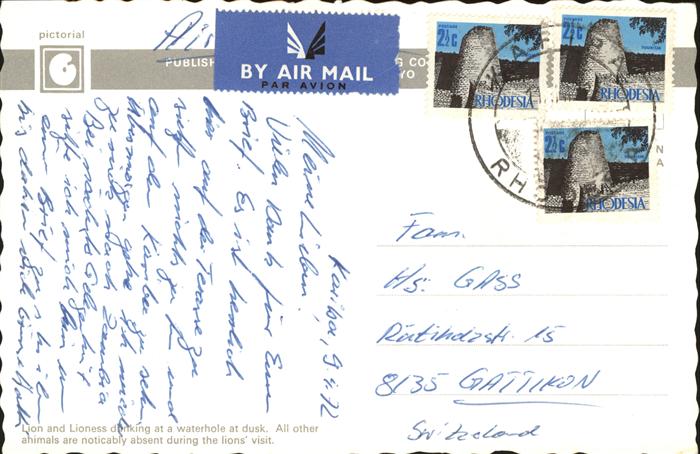 pictorial
Air
PUBLISH
G CO
YO
BY AIR MAIL
PAR AVION
POSTAGE
2½c
RHODESIA
POSTAGE
2½c
TOURISM
RHODESIA
POSTAGE
2½c
TOURISM
RHODESIA
KARIBA
RH
NA
Kariba, 9.4.72
Meine Lieben!
Vielen Dank für Euren
Brief. Es ist herrlich
hier auf der Terrasse zu
sitzen nichts zu tun und
auf den Kariba zu sehen.
Morgen gehe ich
noch nach Zambia
Bei nächster Gelegenheit
setze ich mich hin um
einen Brief zu schreiben
bis dahin
Fam.
Hs: GASS
Rütihofzstr. 15
8135 GATTIKON
Switzerland
Lion and Lioness drinking at a waterhole at dusk. All other
animals are noticably absent during the lions' visit.